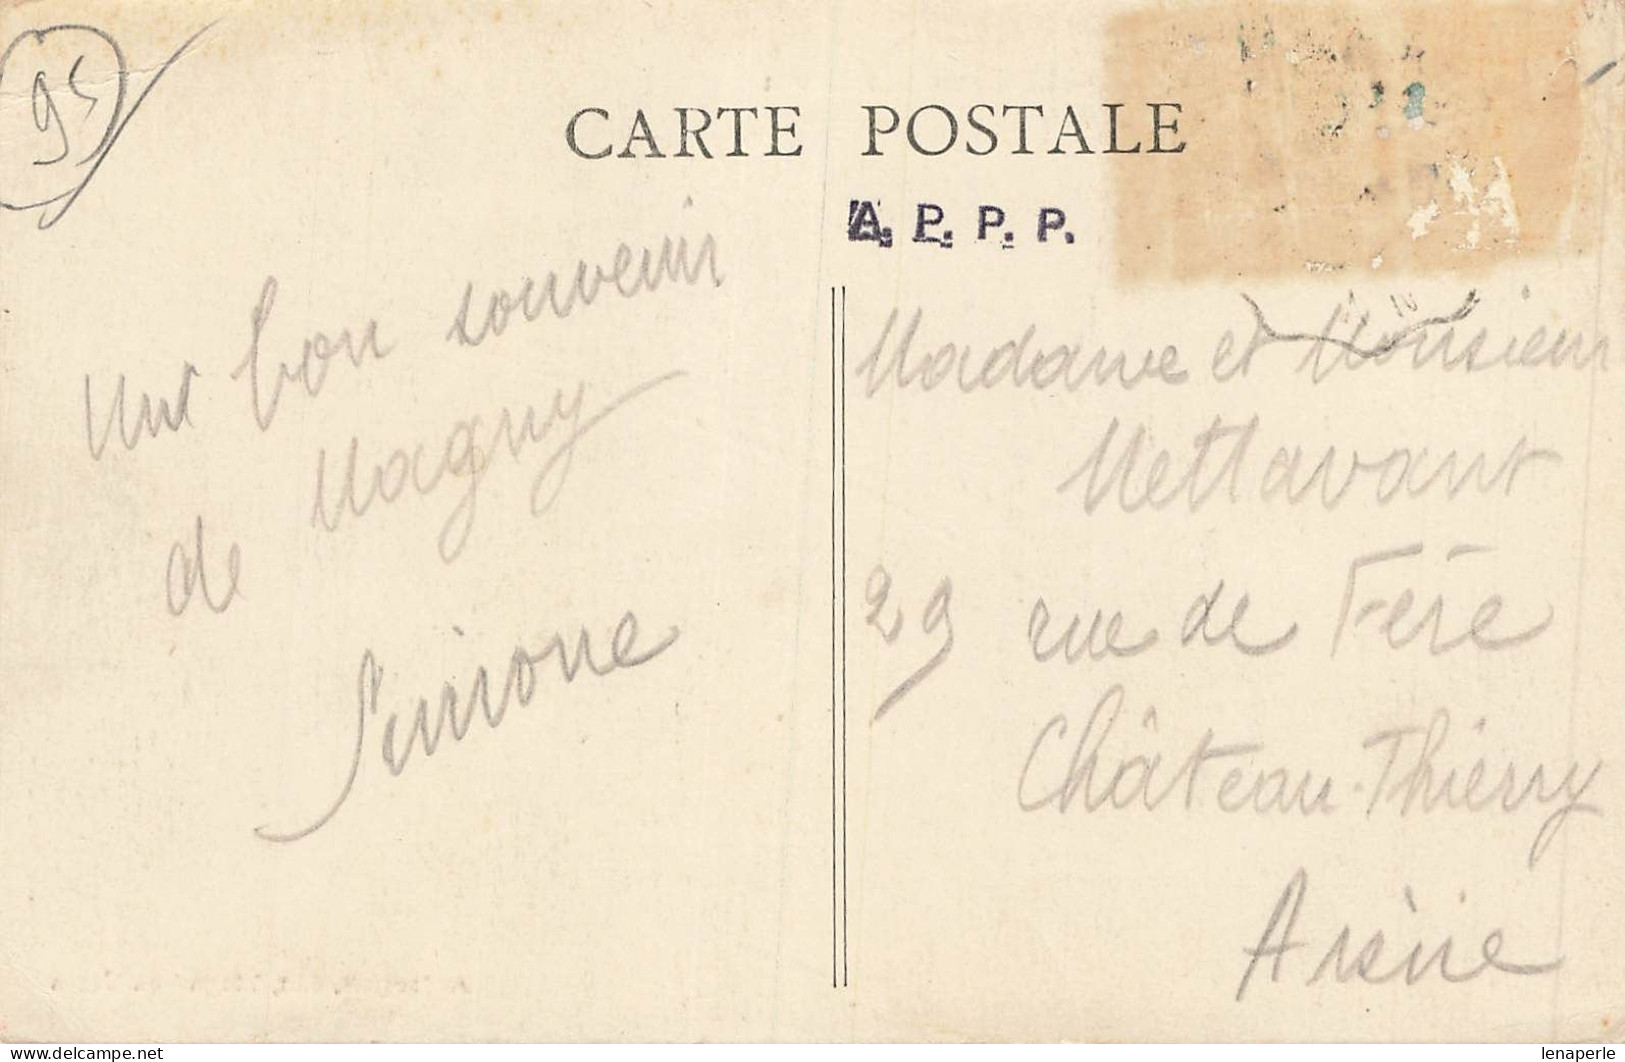 95
CARTE POSTALE
A. P. P. P.
Un bon souvenir
de Magny
Simone
Madame et Monsieur
Mettavant
29 rue de Fère
Château-Thierry
Aisne
lenaperle